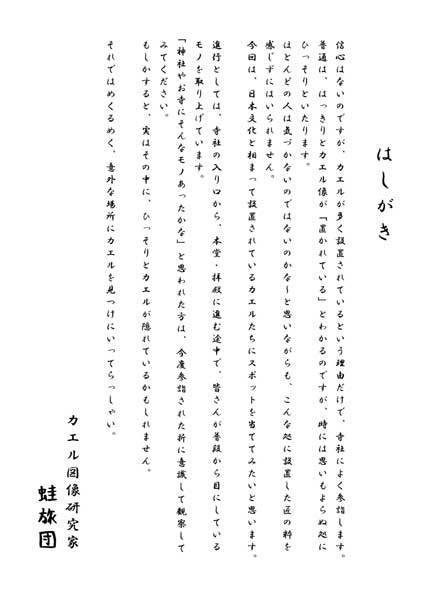 はしがき
信心はないのですが、カエルが多く設置されているという理由だけで、寺社によく参詣します。
普通は、はっきりとカエル像が「置かれている」とわかるのですが、時には思いもよらぬ処に
ひっそりといたります。
ほとんどの人は気づかないのではないのかな～と思いながらも、こんな処に設置した匠の粋を
感じずにはいられません。
今回は、日本文化と相まって設置されているカエルたちにスポットを当ててみたいと思います。
進行としては、寺社の入り口から、本堂・拝殿に進む途中で、皆さんが普段から目にしている
モノを取り上げています。
「神社やお寺にそんなモノあったかな」と思われた方は、今度参詣された折に意識して観察して
みてください。
もしかすると、実はその中に、ひっそりとカエルが隠れているかもしれません。
それではめくるめく、意外な場所にカエルを見つけにいってらっしゃい。
カエル図像研究家
蛙旅団